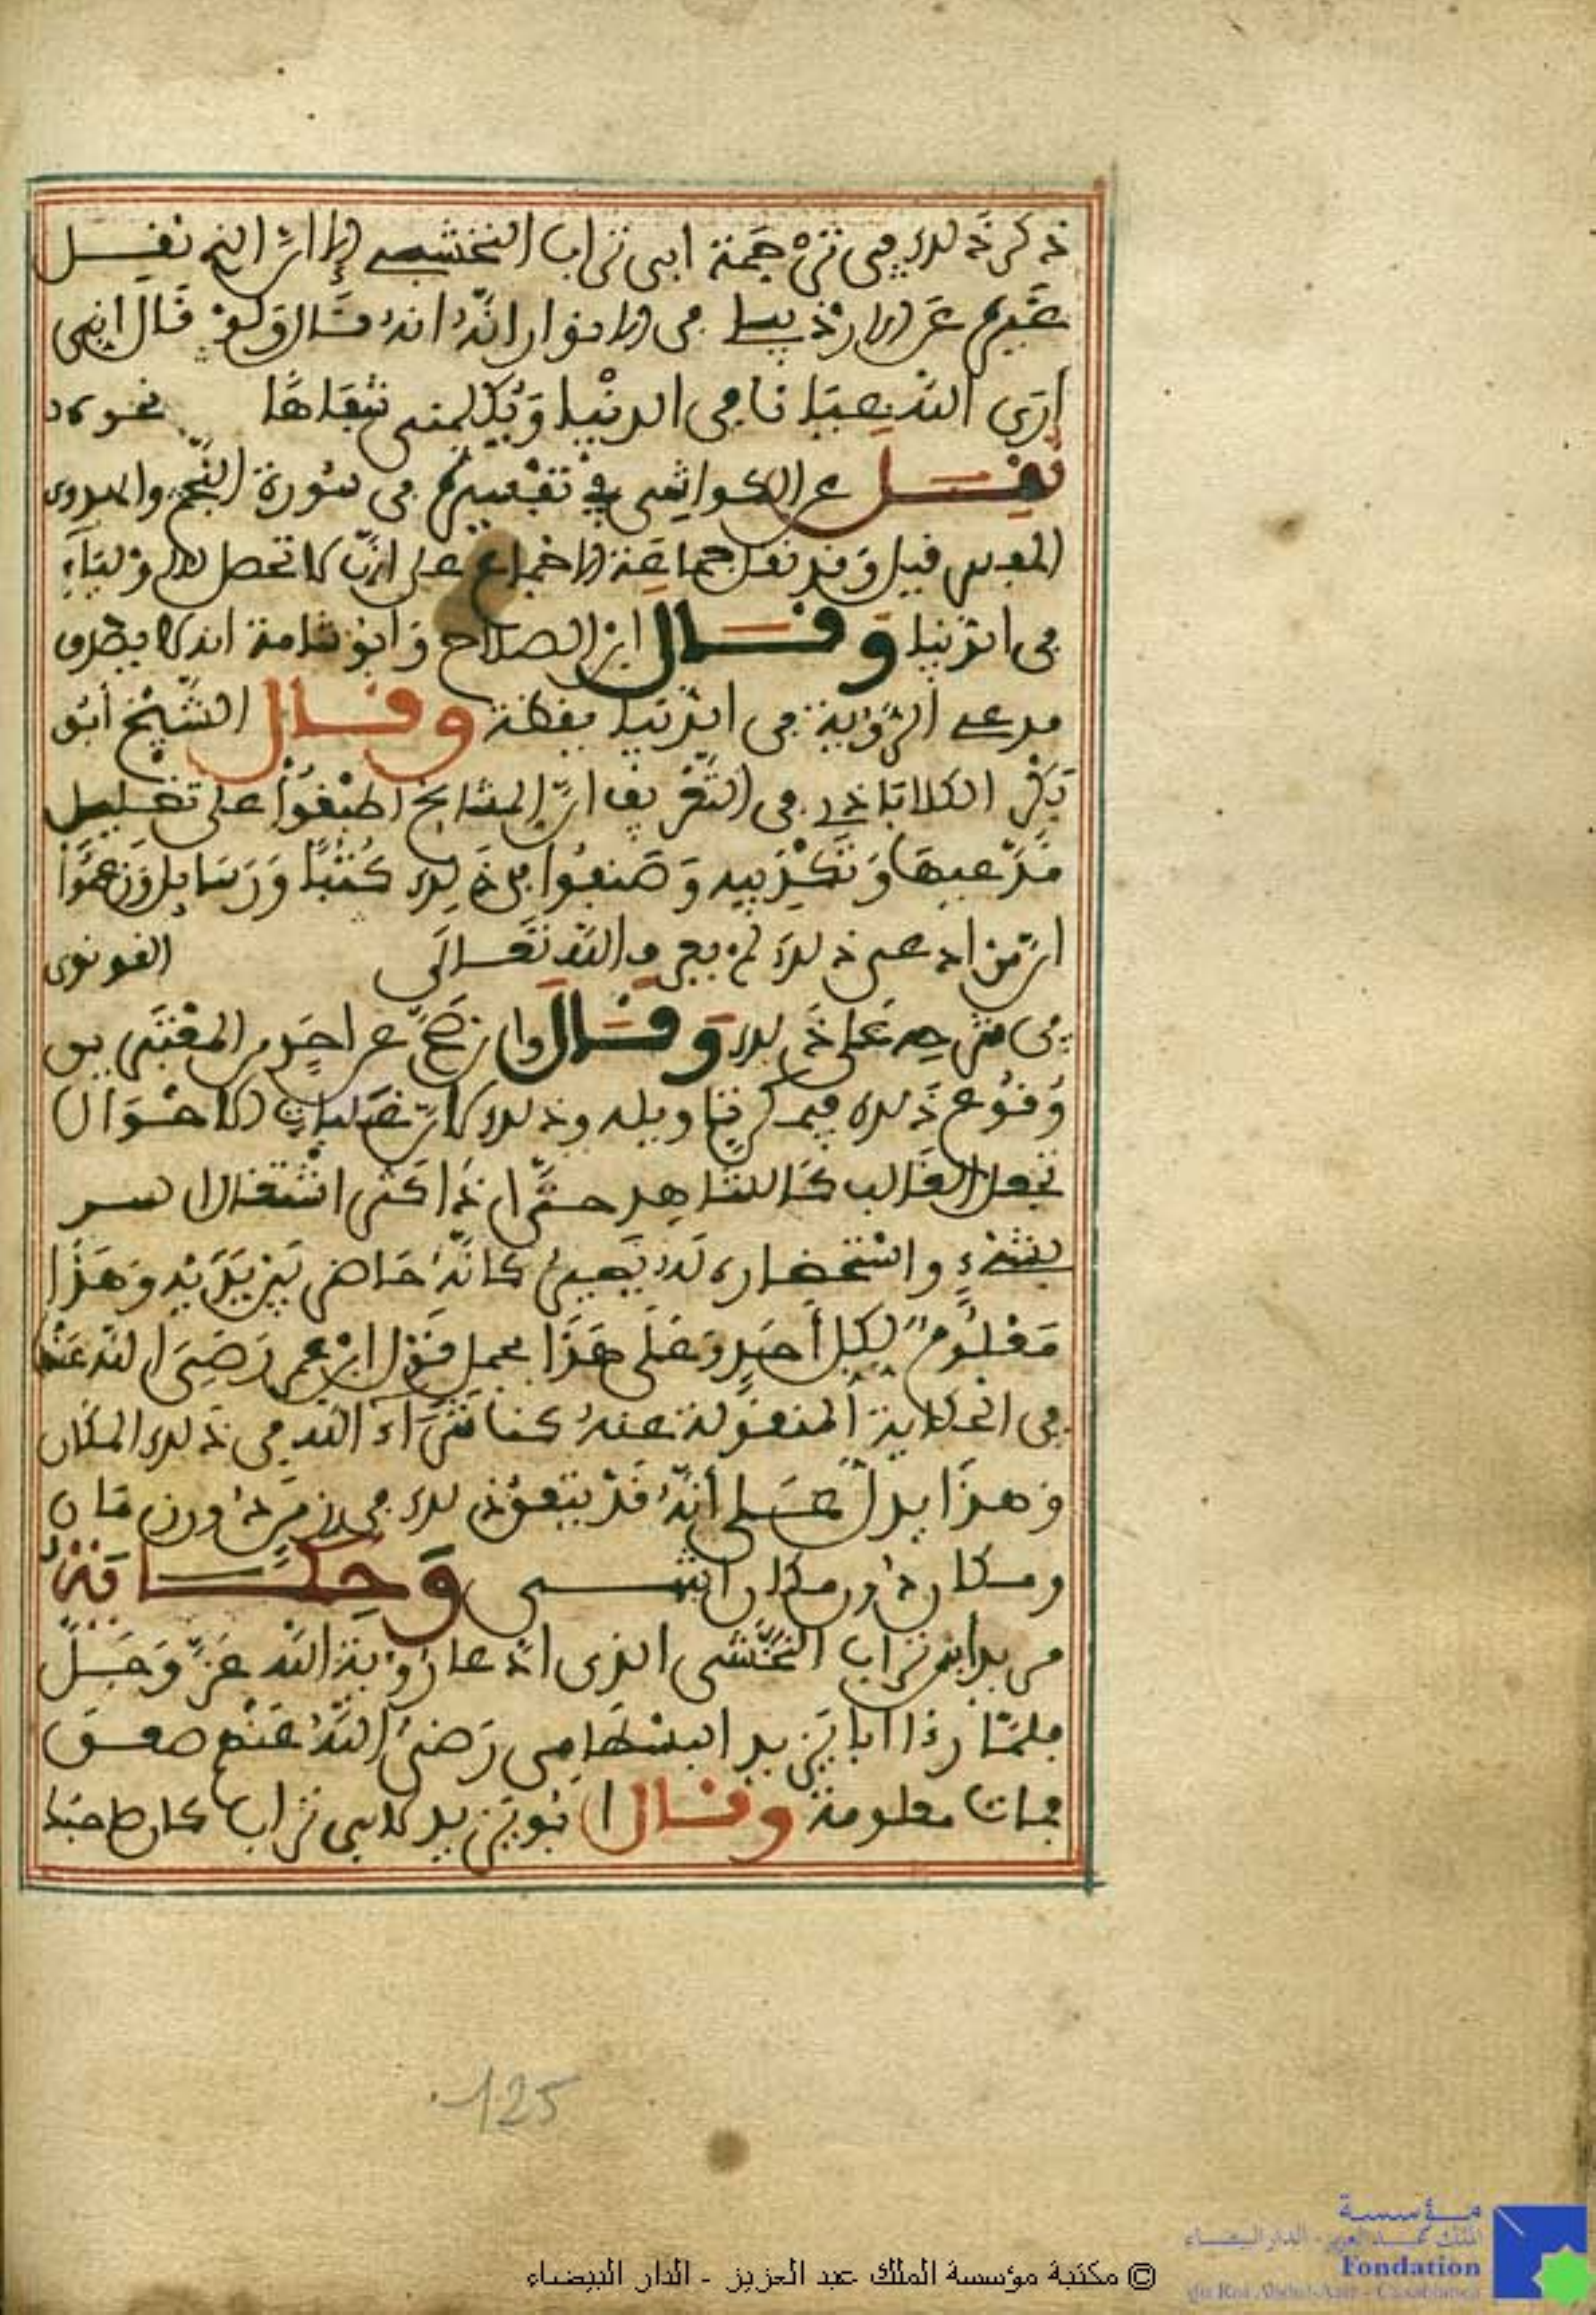 ذكر ذلك في ترجمة ابي تراب النخشبي الا ان الذي نقل
غيره عن الاردبيلي في الانوار انه قال ولو قال اني
ارى الله عيانا في الدنيا ويكلمني شفاها نحوه
نقل عن الكواشي في تفسيره في سورة النجم والمهدوي
المفسر قيل وقد نقل جماعة الاجماع على ان لا تحصل للاولياء
في الدنيا وقال ابن الصلاح وابو شامة انه لا يصدق
مدعي الرؤية في الدنيا يقظة وقال الشيخ أبو
بكر الكلاباذي في التعرف ان المشايخ اطبقوا على تضليل
مدعيها وتكذيبه وصنفوا في ذلك كتبا ورسايل وزعموا
ان من ادعى ذلك لم يعرف الله تعالى القونوي
في شرحه على ذلك وقال وان صح عن احد من المعتبرين
وقوع ذلك فيمكن تاويله وذلك لان غلبات الاحوال
تجعل الغايب كالشاهد حتى اذا كثر اشتغال السر
بشيء واستحضاره له يصير كانه حاضر بين يديه وهذا
معلوم لكل أحد وعلى هذا يحمل قول ابن عمر رضي الله عنه
في الحكاية المنقولة عنه كنا نتراءا الله في ذلك المكان
وهذا يدل على أنه قد يتفق ذلك في زمن دون زمان
ومكان دون مكان انتهى وحكاية
مريد ابي تراب النخشبي الذي ادعا رؤية الله عز وجل
فلما رءا ابا يزيد البسطامي رضي الله عنهم صعق
فمات معلومة وقال ابو يزيد لابي تراب كان صاحبك
125
© مكتبة مؤسسة الملك عبد العزيز - الدار البيضاء
مؤسسة
الملك عبد العزيز - الدار البيضاء
Fondation
du Roi Abdul-Aziz - Casablanca